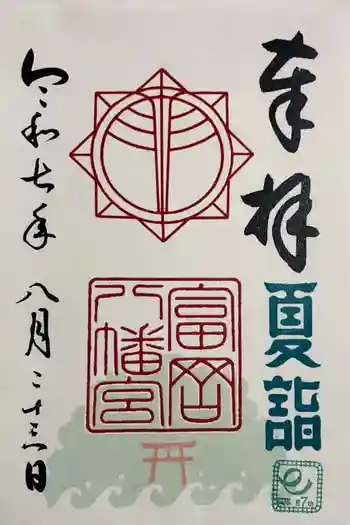 奉拝
夏詣
富岡
八幡宮
令和七年 八月二十三日